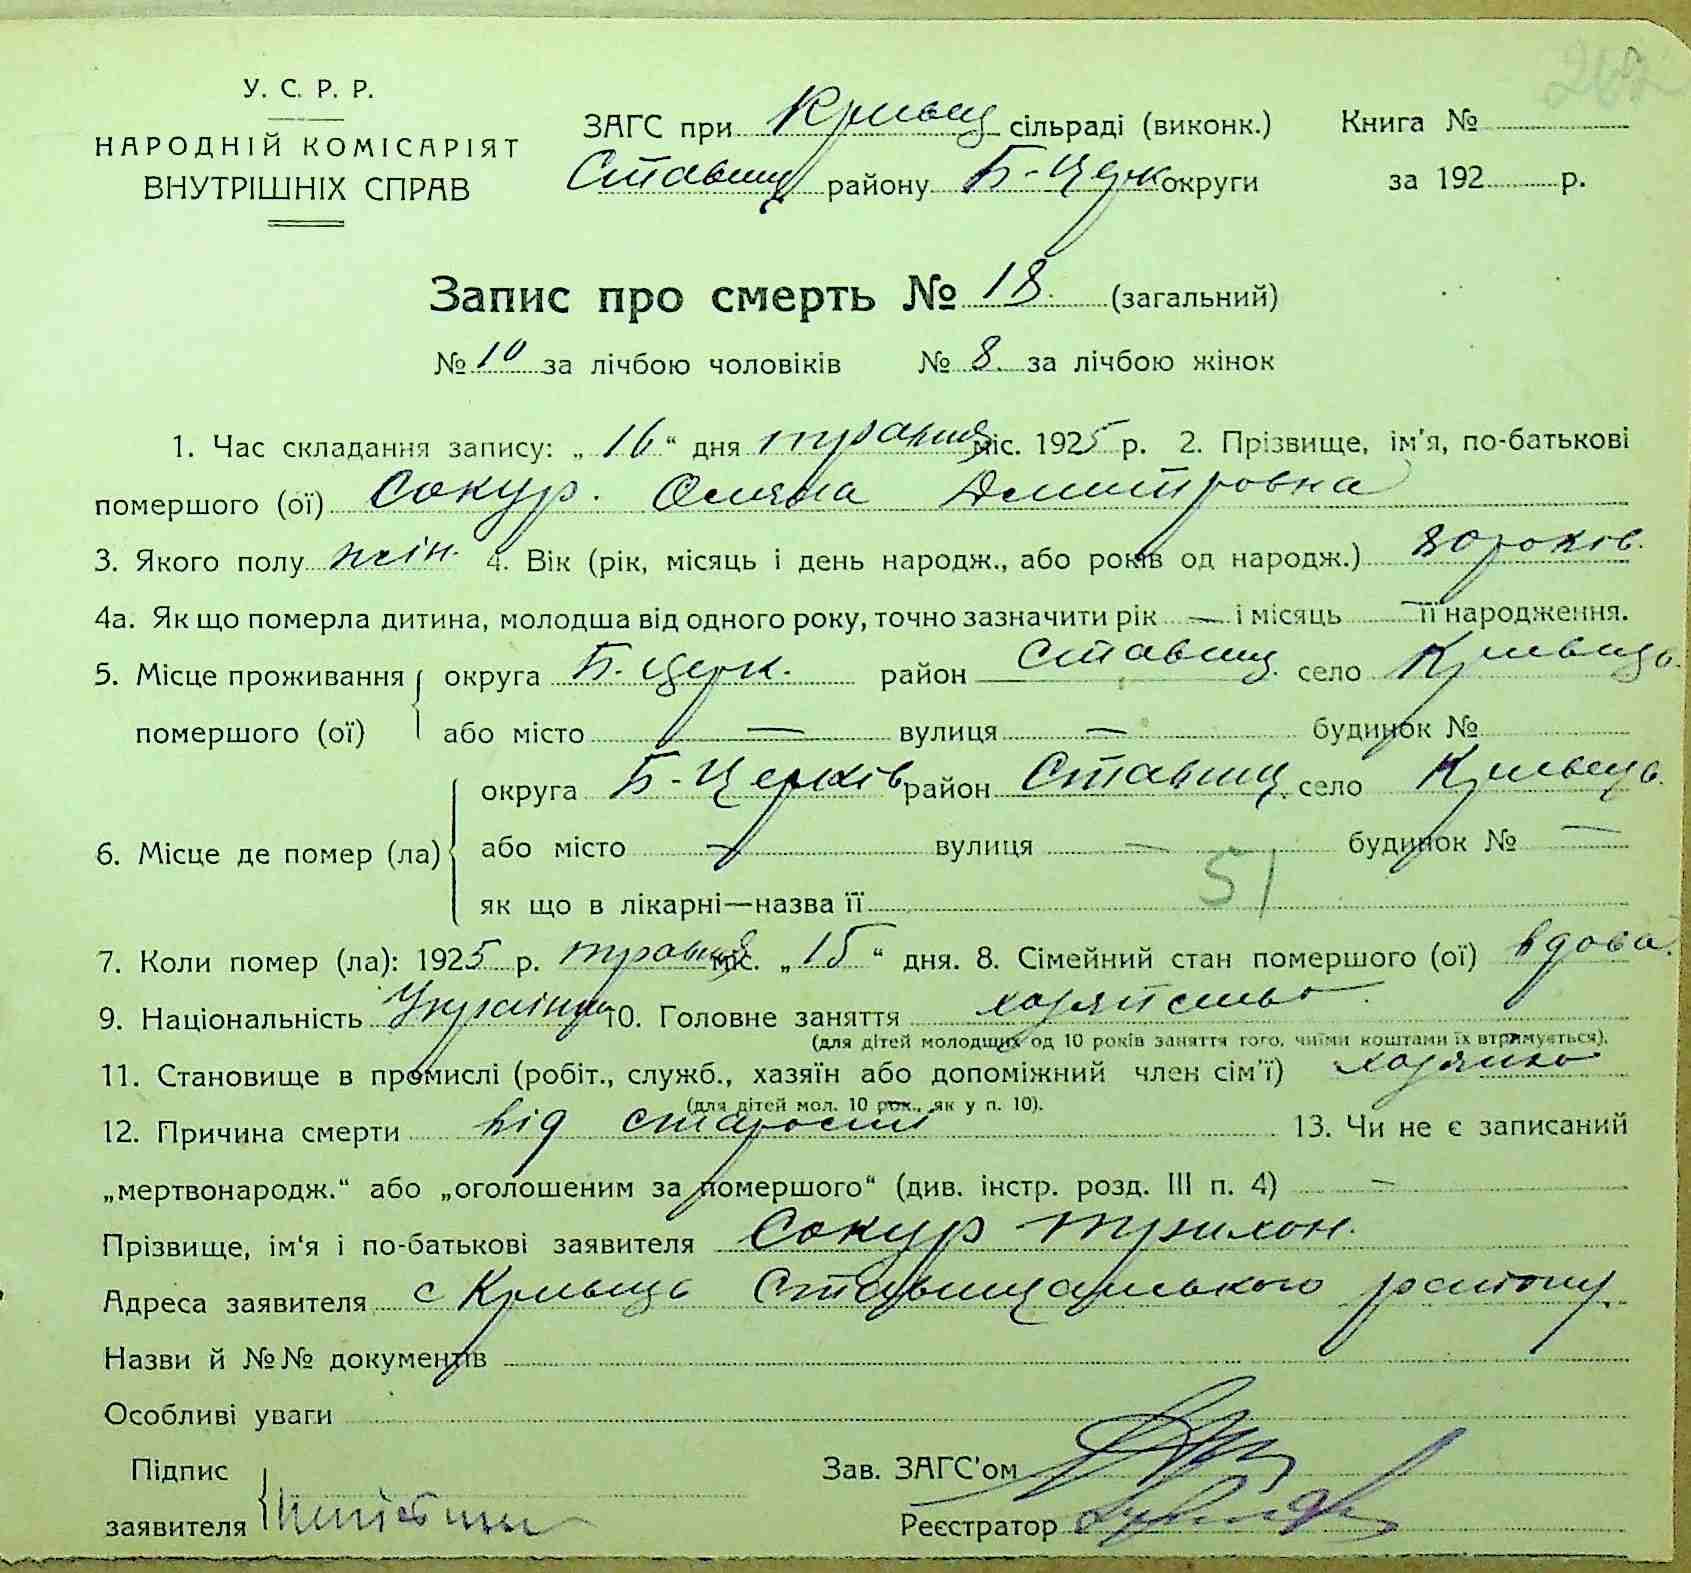 262
У. С. Р. Р.
НАРОДНІЙ КОМІСАРІЯТ
ВНУТРІШНІХ СПРАВ
ЗАГС при Кривец сільраді (виконк.) Книга №
Ставищ району Б-Церк округи за 192 р.
Запис про смерть № 18. (загальний)
№ 10 за лічбою чоловіків № 8. за лічбою жінок
1. Час складання запису: „ 16 “ дня травня міс. 1925 р. 2. Прізвище, ім'я, по-батькові
помершого (ої) Сокур. Оляна Дмитровна
3. Якого полу жін. 4. Вік (рік, місяць і день народж., або років од народж.) 80 років.
4а. Як що померла дитина, молодша від одного року, точно зазначити рік — і місяць — її народження.
5. Місце проживання округа Б. Церк. район Ставищ. село Кривець.
помершого (ої) або місто — вулиця — будинок №
округа Б-Церків район Ставищ. село Кривець.
6. Місце де помер (ла) або місто — вулиця — будинок № —
51
як що в лікарні—назва її
7. Коли помер (ла): 1925 р. травня міс. „ 15 “ дня. 8. Сімейний стан помершого (ої) вдова.
9. Національність Україн 10. Головне заняття
(для дітей молодших од 10 років заняття того, чиїми коштами їх втримується).
11. Становище в промислі (робіт., служб., хазяїн або допоміжний член сім'ї)
(для дітей мол. 10 рок., як у п. 10).
12. Причина смерти від старости 13. Чи не є записаний
„мертвонародж.“ або „оголошеним за помершого“ (див. інстр. розд. III п. 4) —
Прізвище, ім'я і по-батькові заявителя Сокур Трихон.
Адреса заявителя с Кривець Ставищанського району
Назви й №№ документів
Особливі уваги
Підпис
заявителя
Зав. ЗАГС'ом
Реєстратор